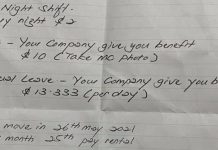 Night Shift.
y night $2
- Your Company give you benefit
$10 (Take MC Photo)
ual Leave - Your Company give you b
$13.333 (per day)
move in 26th may 2021
month 25th pay rental